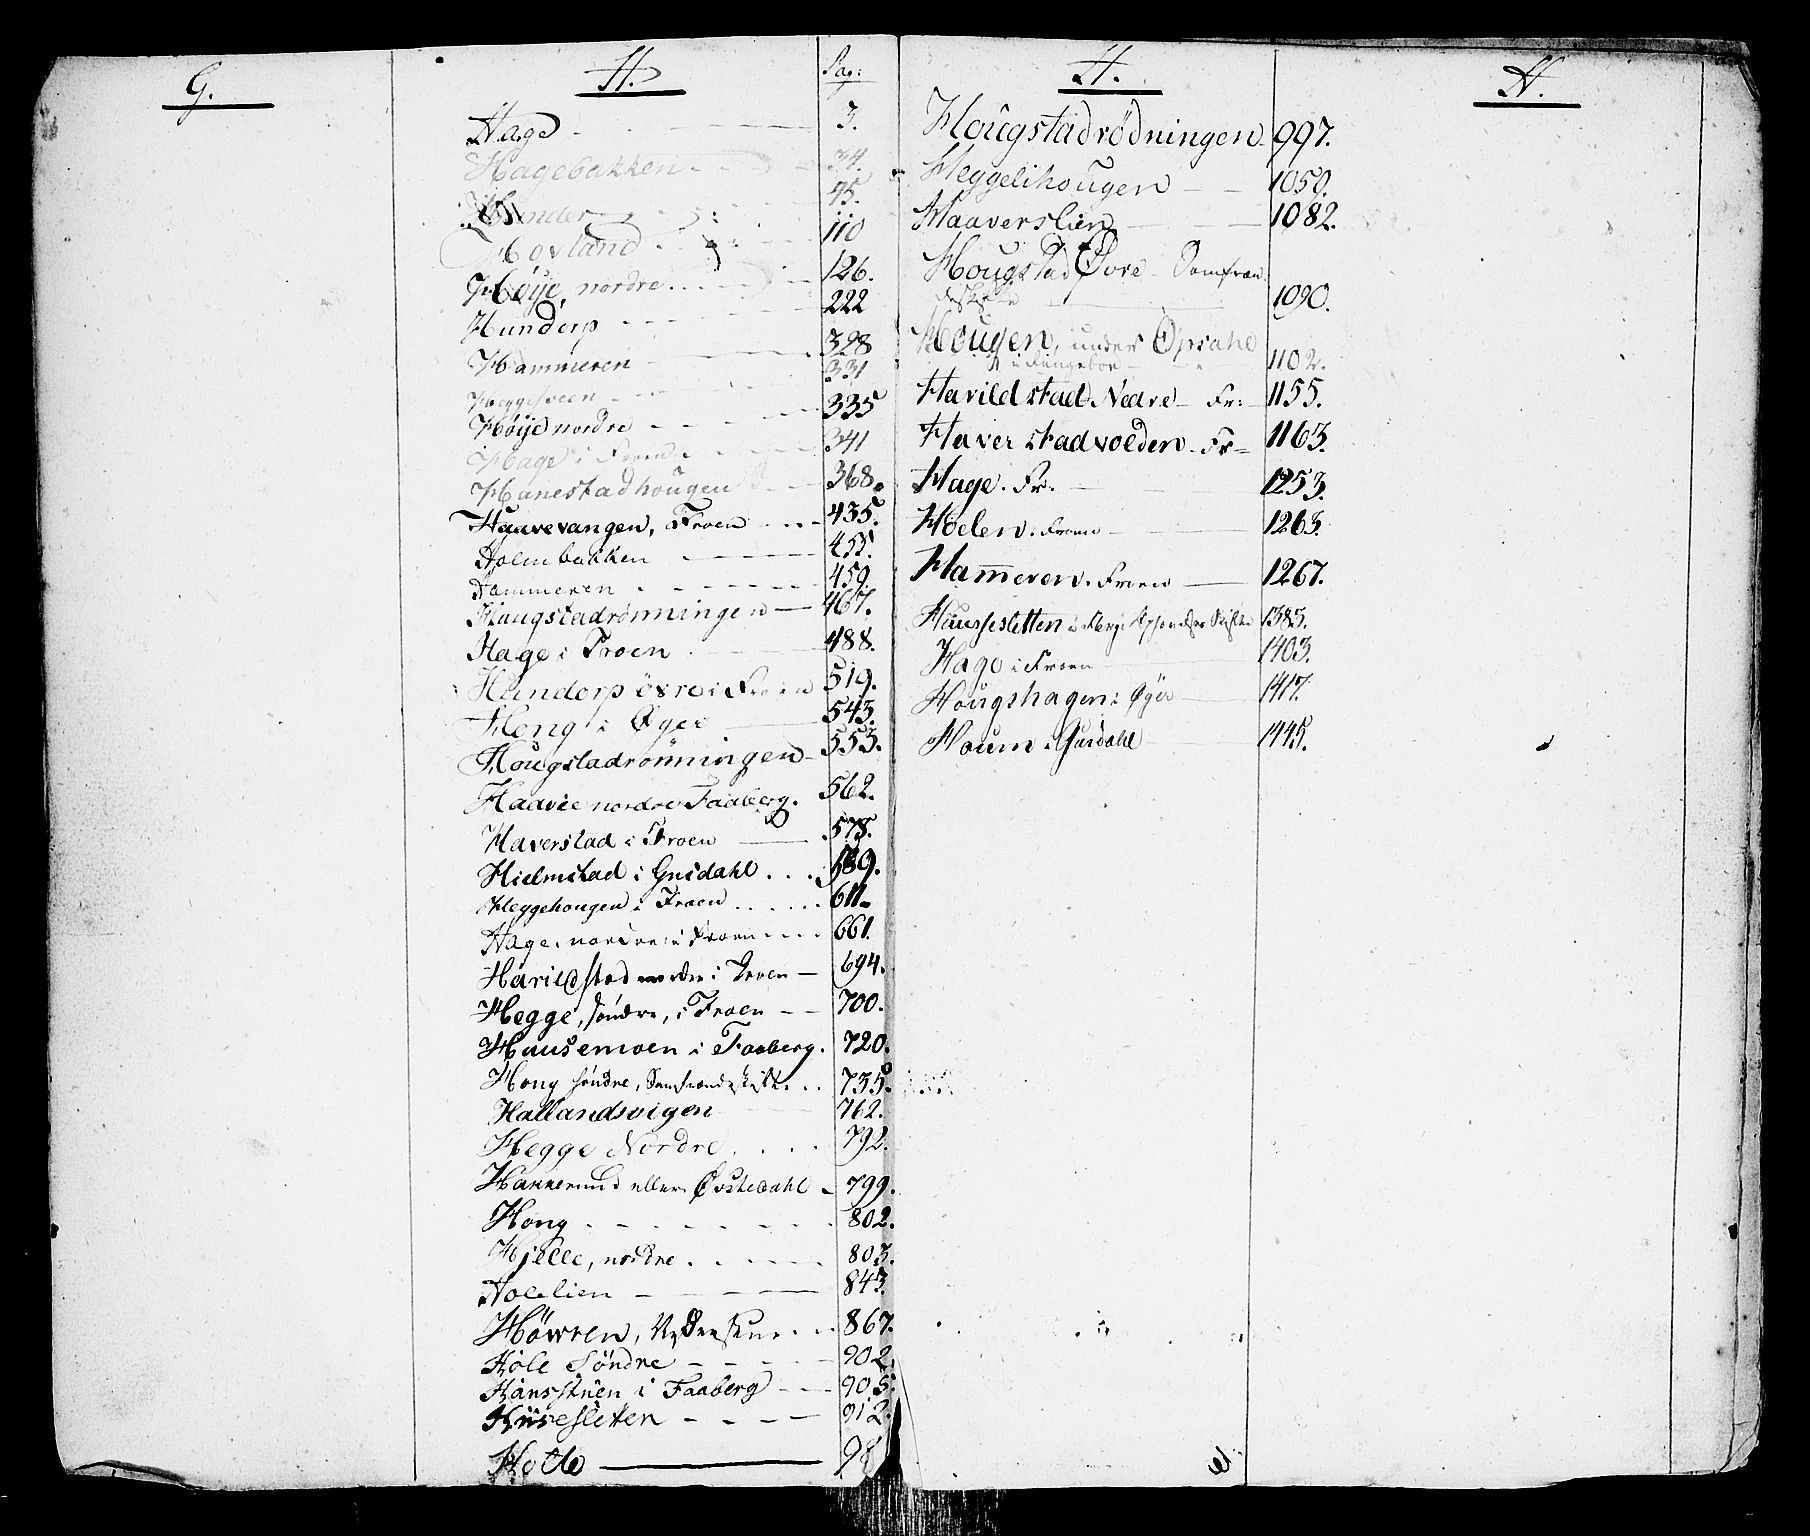 G.
H.
Pag:
Hage 3.
Hagebakken 34.
95.
Hovland 110
Høije, nordre 126.
Hunderp 222
Hammeren 328
Heggesveen 331
Høije nordre 335
Hage i Froen 341
Hanestadhougen 368.
Haavevangen, Froen 435.
Holmbakken 455.
Hammeren 459.
Haugstadrønningen 467.
Hage i Froen 488.
Hunderp øvre i Froen 519.
Heng i Øyer 543.
Hougstadrønningen 553.
Haavie nordre Faaberg. 562.
Haverstad i Froen 578.
Hielmstad i Gusdahl 589.
Heggehougen i Froen 611.
Hage, nordre i Froen 661.
Harildstad nordre i Froen 694.
Hegge, søndre, i Froen 700.
Huusemoen i Faaberg. 720.
Hong søndre, Samfrændeskifte 735.
Hallandsvigen 762.
Hegge Nordre 792.
Hammerund eller Øvstedahl 799.
Hong 802.
Hjelle, nordre 803.
Holelien 843.
Høvren, 867.
Hole Søndre 902.
Hansstuen i Faaberg 905.
Huusesletten 912.
Holle 98
H.
Hougstadrödningen 997.
Heggelihougen 1050.
Haaverslien 1082.
Hougstad Øvre Samfræn
deskifte 1090.
Hougen, under Opsahl
i Ringeboe 1102.
Harildstad Nedre Fr: 1155.
Haverstadvolden Fr 1163.
Hage. Fr. 1253.
Hoelen. Froen 1263.
Ham̅eren. Froen 1267.
Haussesletten i 1385.
Hage i Froen 1403.
Hougshagen i Øyer 1417.
Houm i Gusdahl 1445.
H.